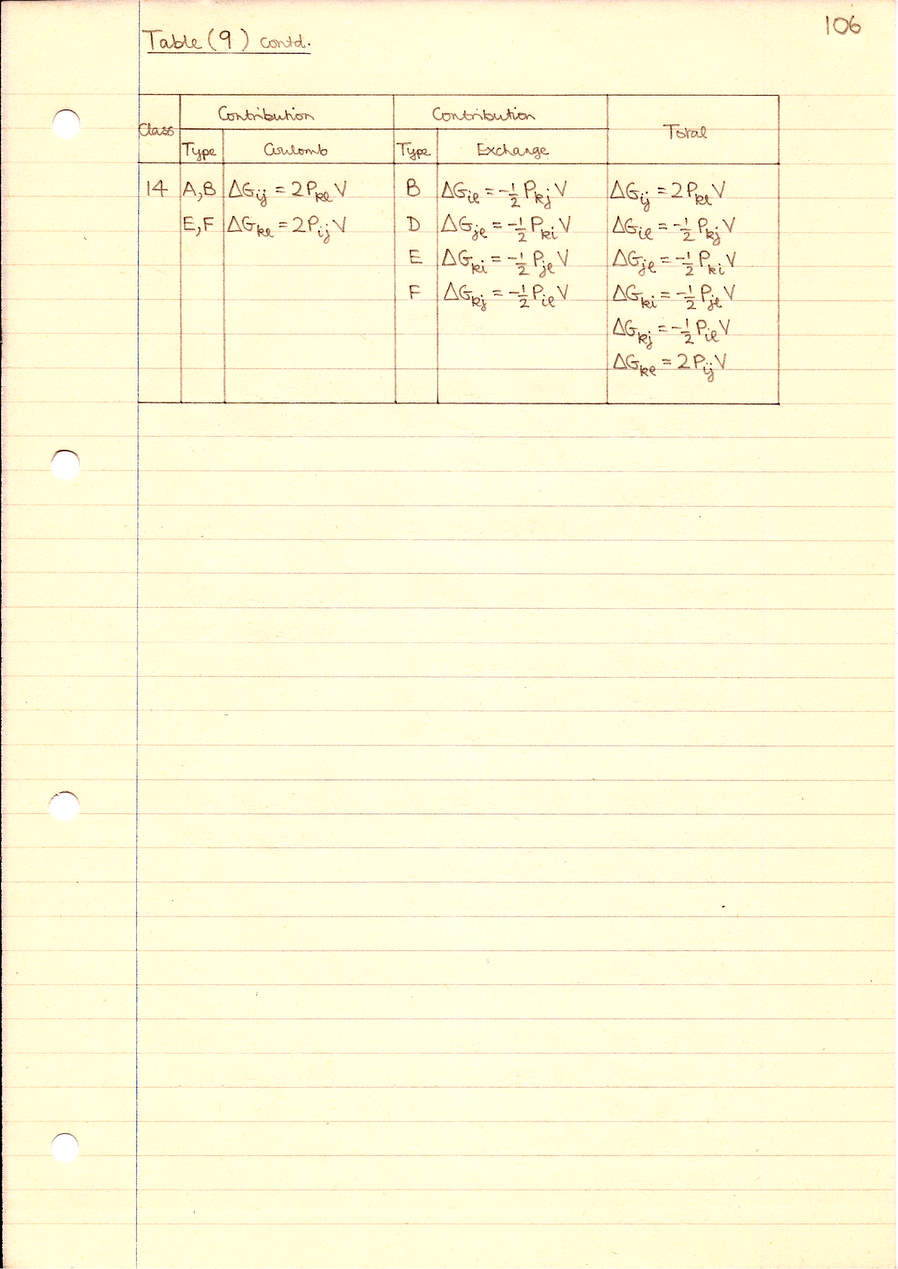 106
Table (9) contd.
Class Contribution Contribution Total
Type Coulomb Type Exchange
14 A,B ΔG_ij = 2P_kl V B ΔG_il = -1/2 P_kj V ΔG_ij = 2P_kl V
E,F ΔG_kl = 2P_ij V D ΔG_jl = -1/2 P_ki V ΔG_il = -1/2 P_kj V
E ΔG_ki = -1/2 P_jl V ΔG_jl = -1/2 P_ki V
F ΔG_kj = -1/2 P_il V ΔG_ki = -1/2 P_jl V
ΔG_kj = -1/2 P_il V
ΔG_kl = 2P_ij V